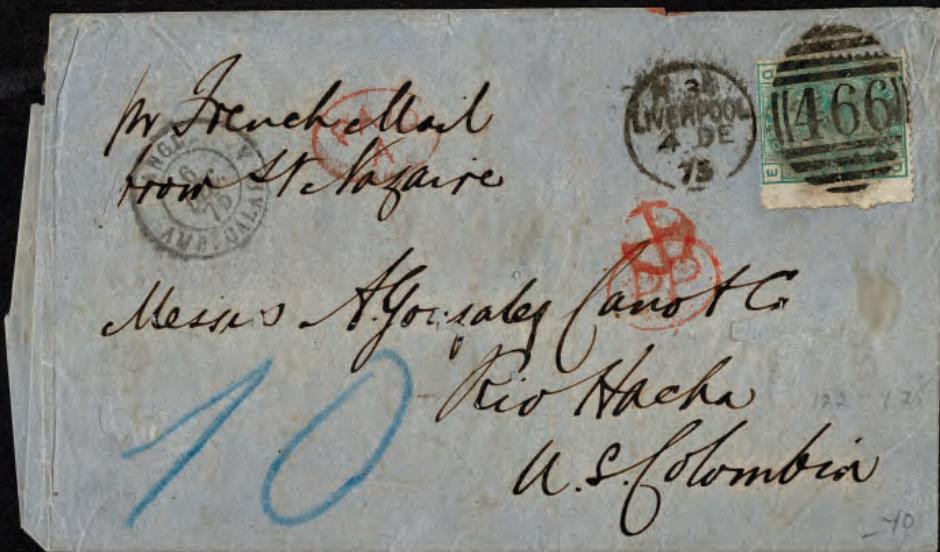 pr French Mail
from St Nazaire
3L
LIVERPOOL
4 DE
75
466
ANGL.
AMB. CALAIS
PP
Messrs A. Gonzalez Cano & Co
Rio Hacha
U.S. Colombia
10